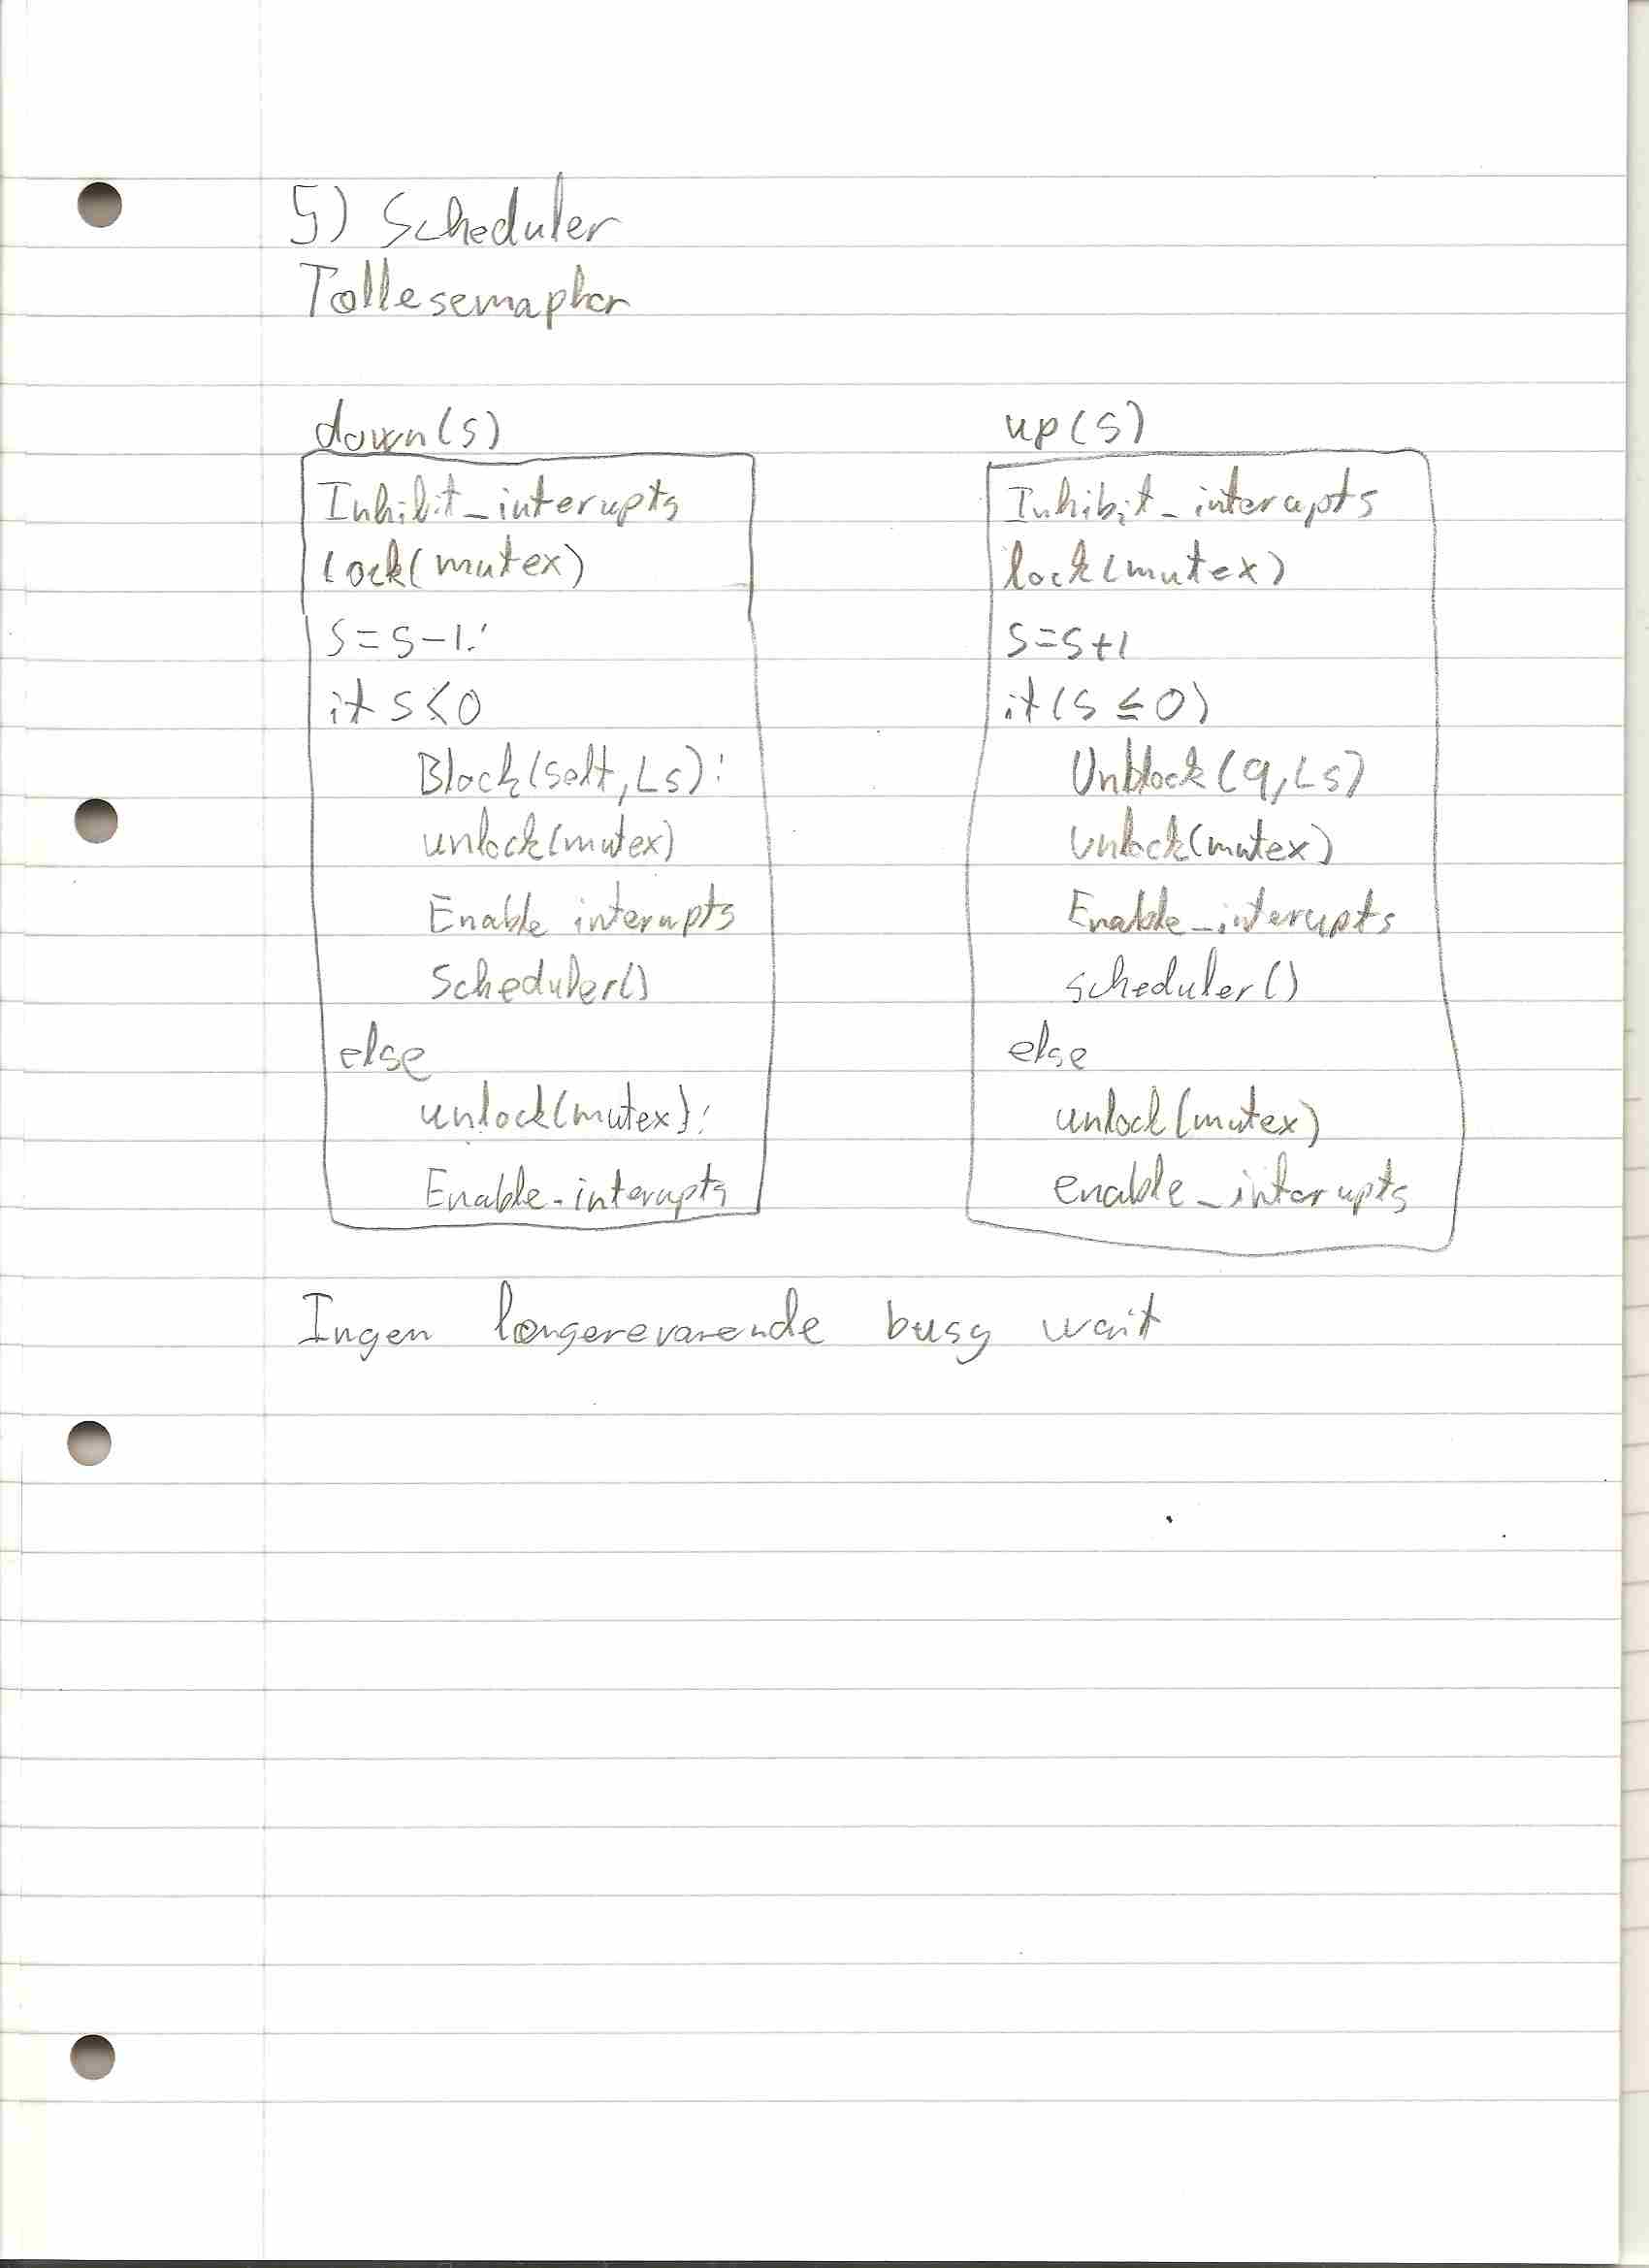 5) Scheduler
Tollesemaphor
down(s)
Inhibit_interupts
lock(mutex)
s=s-1:
if s<0
Block(self,Ls):
unlock(mutex)
Enable interupts
Scheduler()
else
unlock(mutex):
Enable_interupts
up(s)
Inhibit_interupts
lock(mutex)
s=s+1
if(s≤0)
Unblock(q,Ls)
Unlock(mutex)
Enable_interupts
scheduler()
else
unlock(mutex)
enable_interupts
Ingen længerevarende busy wait